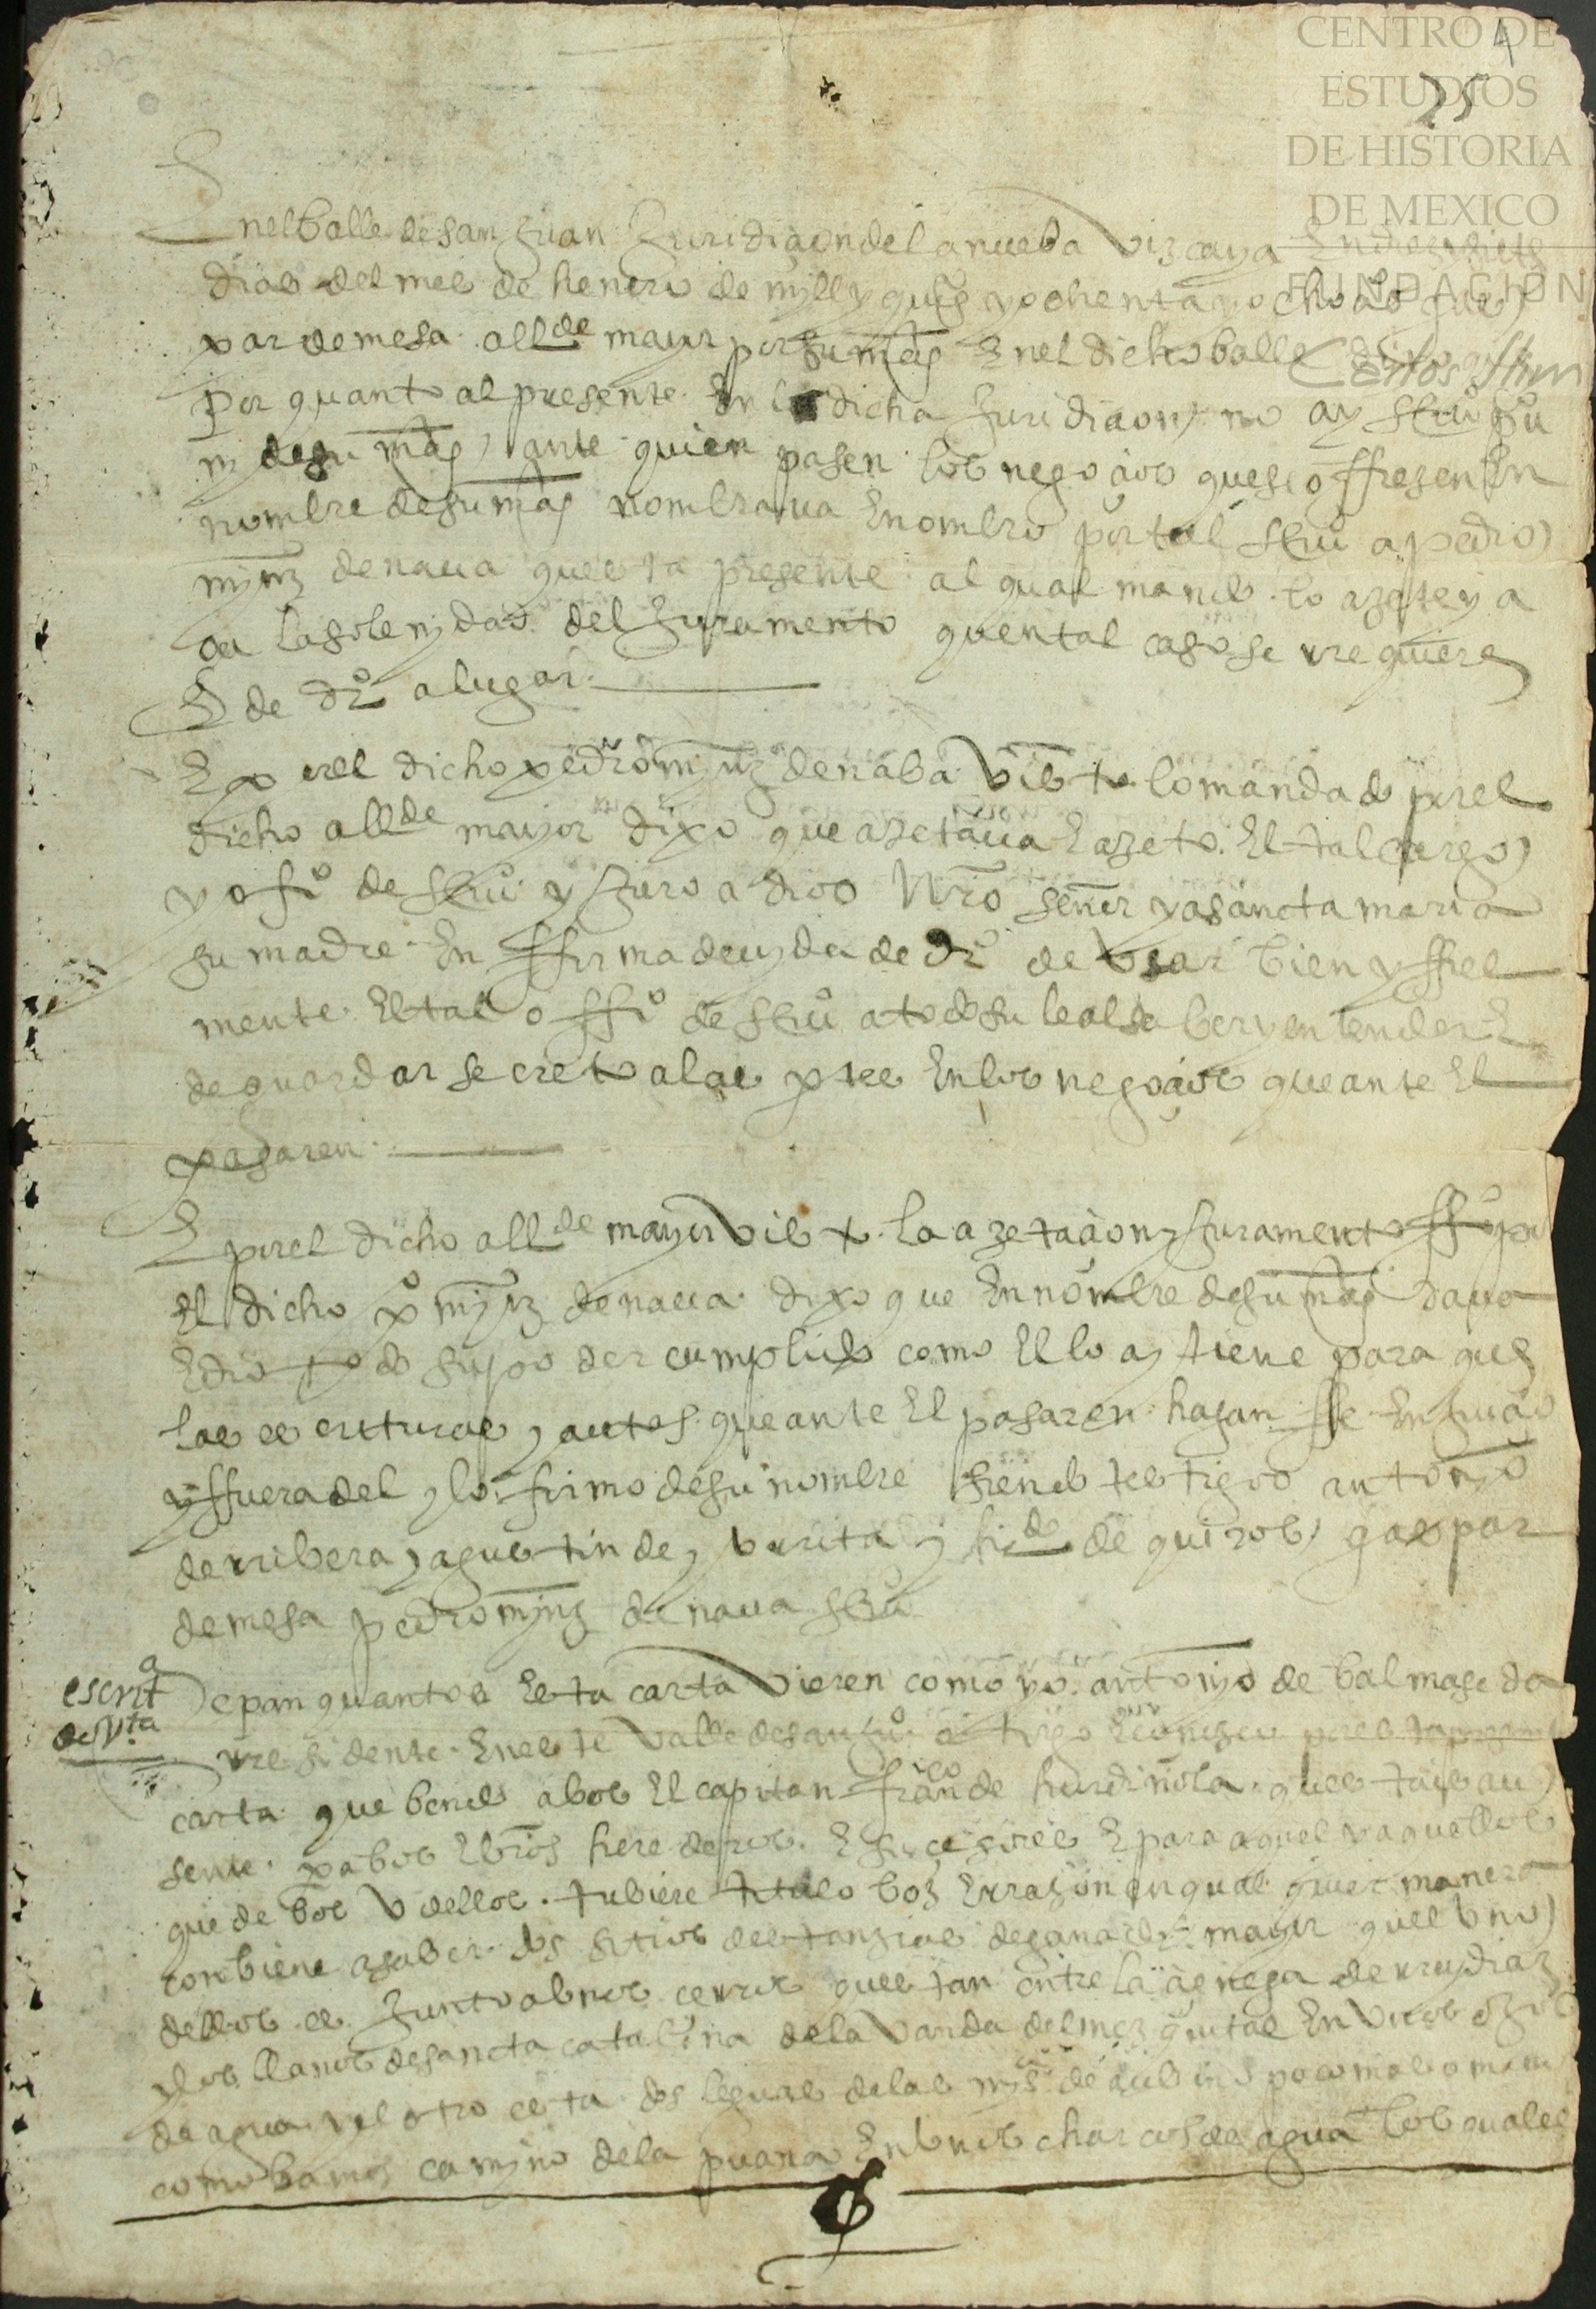 4
25
CENTRO DE
ESTUDIOS
DE HISTORIA
DE MEXICO
FUNDACION
Carlos Slim
En el balle de san juan juridiçion de la nueba vizcaya en diez y siete
dias del mes de henero de mill y quis y ochenta y ocho aos
par de mesa allde mayor por su magd en el dicho balle dixo q
por quanto al presente en la dicha juridiçion no ay scriuo pu
ni de su magd ante quien pasen los negoçios que se offresen en
nombre de su magd nombraua e nombro por tal scriuo a pedro
mynz de naua questa presente al qual mando lo azete y a
ga la solenydad del juramento quen tal caso se rrequiere
E de dro a lugar
E por el dicho pedro mynz de naba visto lo mandado por el
dicho allde mayor dixo que azetaua e azeto el tal cargo
y ofio de scriuo y juro a dios nro señor y a sancta maria
su madre en fforma deuyda de dro de vsar bien y ffiel
mente el tal offio de scriuo a todo su leal saber y entender E
de guardar secreto a las ptes en los negoçios que ante el
pasaren
E por el dicho allde mayor visto la azetaçion y juramento ffo por
el dicho po mynz de naua dixo que en nombre de su magd daua
e dio todo su poder cumplido como el lo ay tiene para que
las escrituras y autos que ante el pasaren hagan ffe en juiço
y ffuera del y lo firmo de su nombre siendo testigos antonyo
de rribera y agustin de y burita y hdo de quiros gaspar
de mesa pedro mynz de naua scriuo
escrita
de Vta
Sepan quantos esta carta vieren como yo antonyo de balmaseda
rresidente en este valle de san juo otorgo e conozco por esta presente
carta que bendo a bos el capitan franco de hurdiñola questais au
sente pa bos e bros herederos e suçesores e para aquel o aquellos
que de bos v dellos tubiere titulo boz e rrazon en qual quier manera
conbiene a saber dos sitios destanzias de ganado mayor quel vno
dellos es junto a bnos cerros questan entre la çienega de rruy diaz
y los llanos de sancta catalina de la vanda del mezquital en vnos ojos
de agua y el otro esta dos leguas de las mys de abinо poco mas o menos
como bamos camyno de la puana en bnos charcos de agua los quales